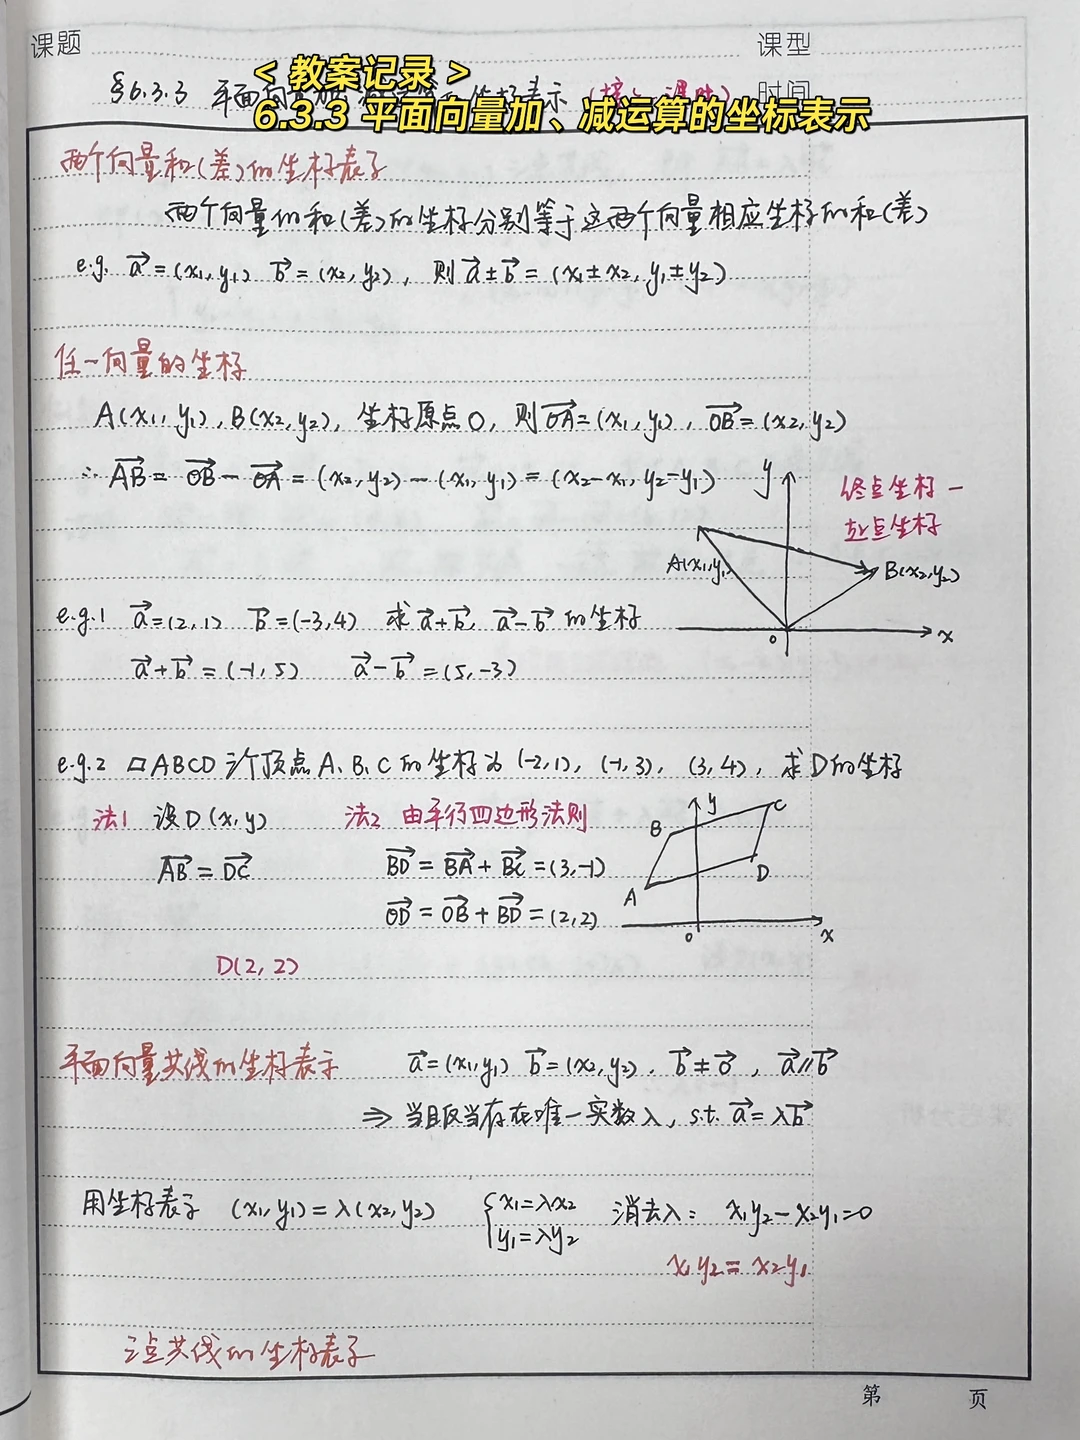 课题
课型
<教案记录>
§6.3.3 平面向量加、减运算的坐标表示
时间
6.3.3 平面向量加、减运算的坐标表示
两个向量和(差)的坐标表示
两个向量的和(差)的坐标分别等于这两个向量相应坐标的和(差)
e.g. a⃗=(x₁,y₁) b⃗=(x₂,y₂), 则a⃗±b⃗=(x₁±x₂,y₁±y₂)
任一向量的坐标
A(x₁,y₁),B(x₂,y₂), 坐标原点O, 则OA⃗=(x₁,y₁), OB⃗=(x₂,y₂)
∴AB⃗=OB⃗-OA⃗=(x₂,y₂)-(x₁,y₁)=(x₂-x₁,y₂-y₁)
y
终点坐标-
起点坐标
A(x₁,y₁)
B(x₂,y₂)
0
x
e.g.1 a⃗=(2,1) b⃗=(-3,4) 求a⃗+b⃗, a⃗-b⃗的坐标
a⃗+b⃗=(-1,5) a⃗-b⃗=(5,-3)
e.g.2 ▱ABCD 三个顶点A、B、C的坐标为(-2,1), (-1,3), (3,4), 求D的坐标
法1 设D(x,y) 法2 由平行四边形法则
AB⃗=DC⃗ BD⃗=BA⃗+BC⃗=(3,-1)
OD⃗=OB⃗+BD⃗=(2,2)
y
B
C
A
D
0
x
D(2,2)
平面向量共线的坐标表示 a⃗=(x₁,y₁) b⃗=(x₂,y₂). b⃗≠0⃗, a⃗∥b⃗
⇒当且仅当存在唯一实数λ, s.t. a⃗=λb⃗
用坐标表示 (x₁,y₁)=λ(x₂,y₂) {x₁=λx₂ 消去λ: x₁y₂-x₂y₁=0
y₁=λy₂
x₁y₂=x₂y₁
三点共线的坐标表示
第 页